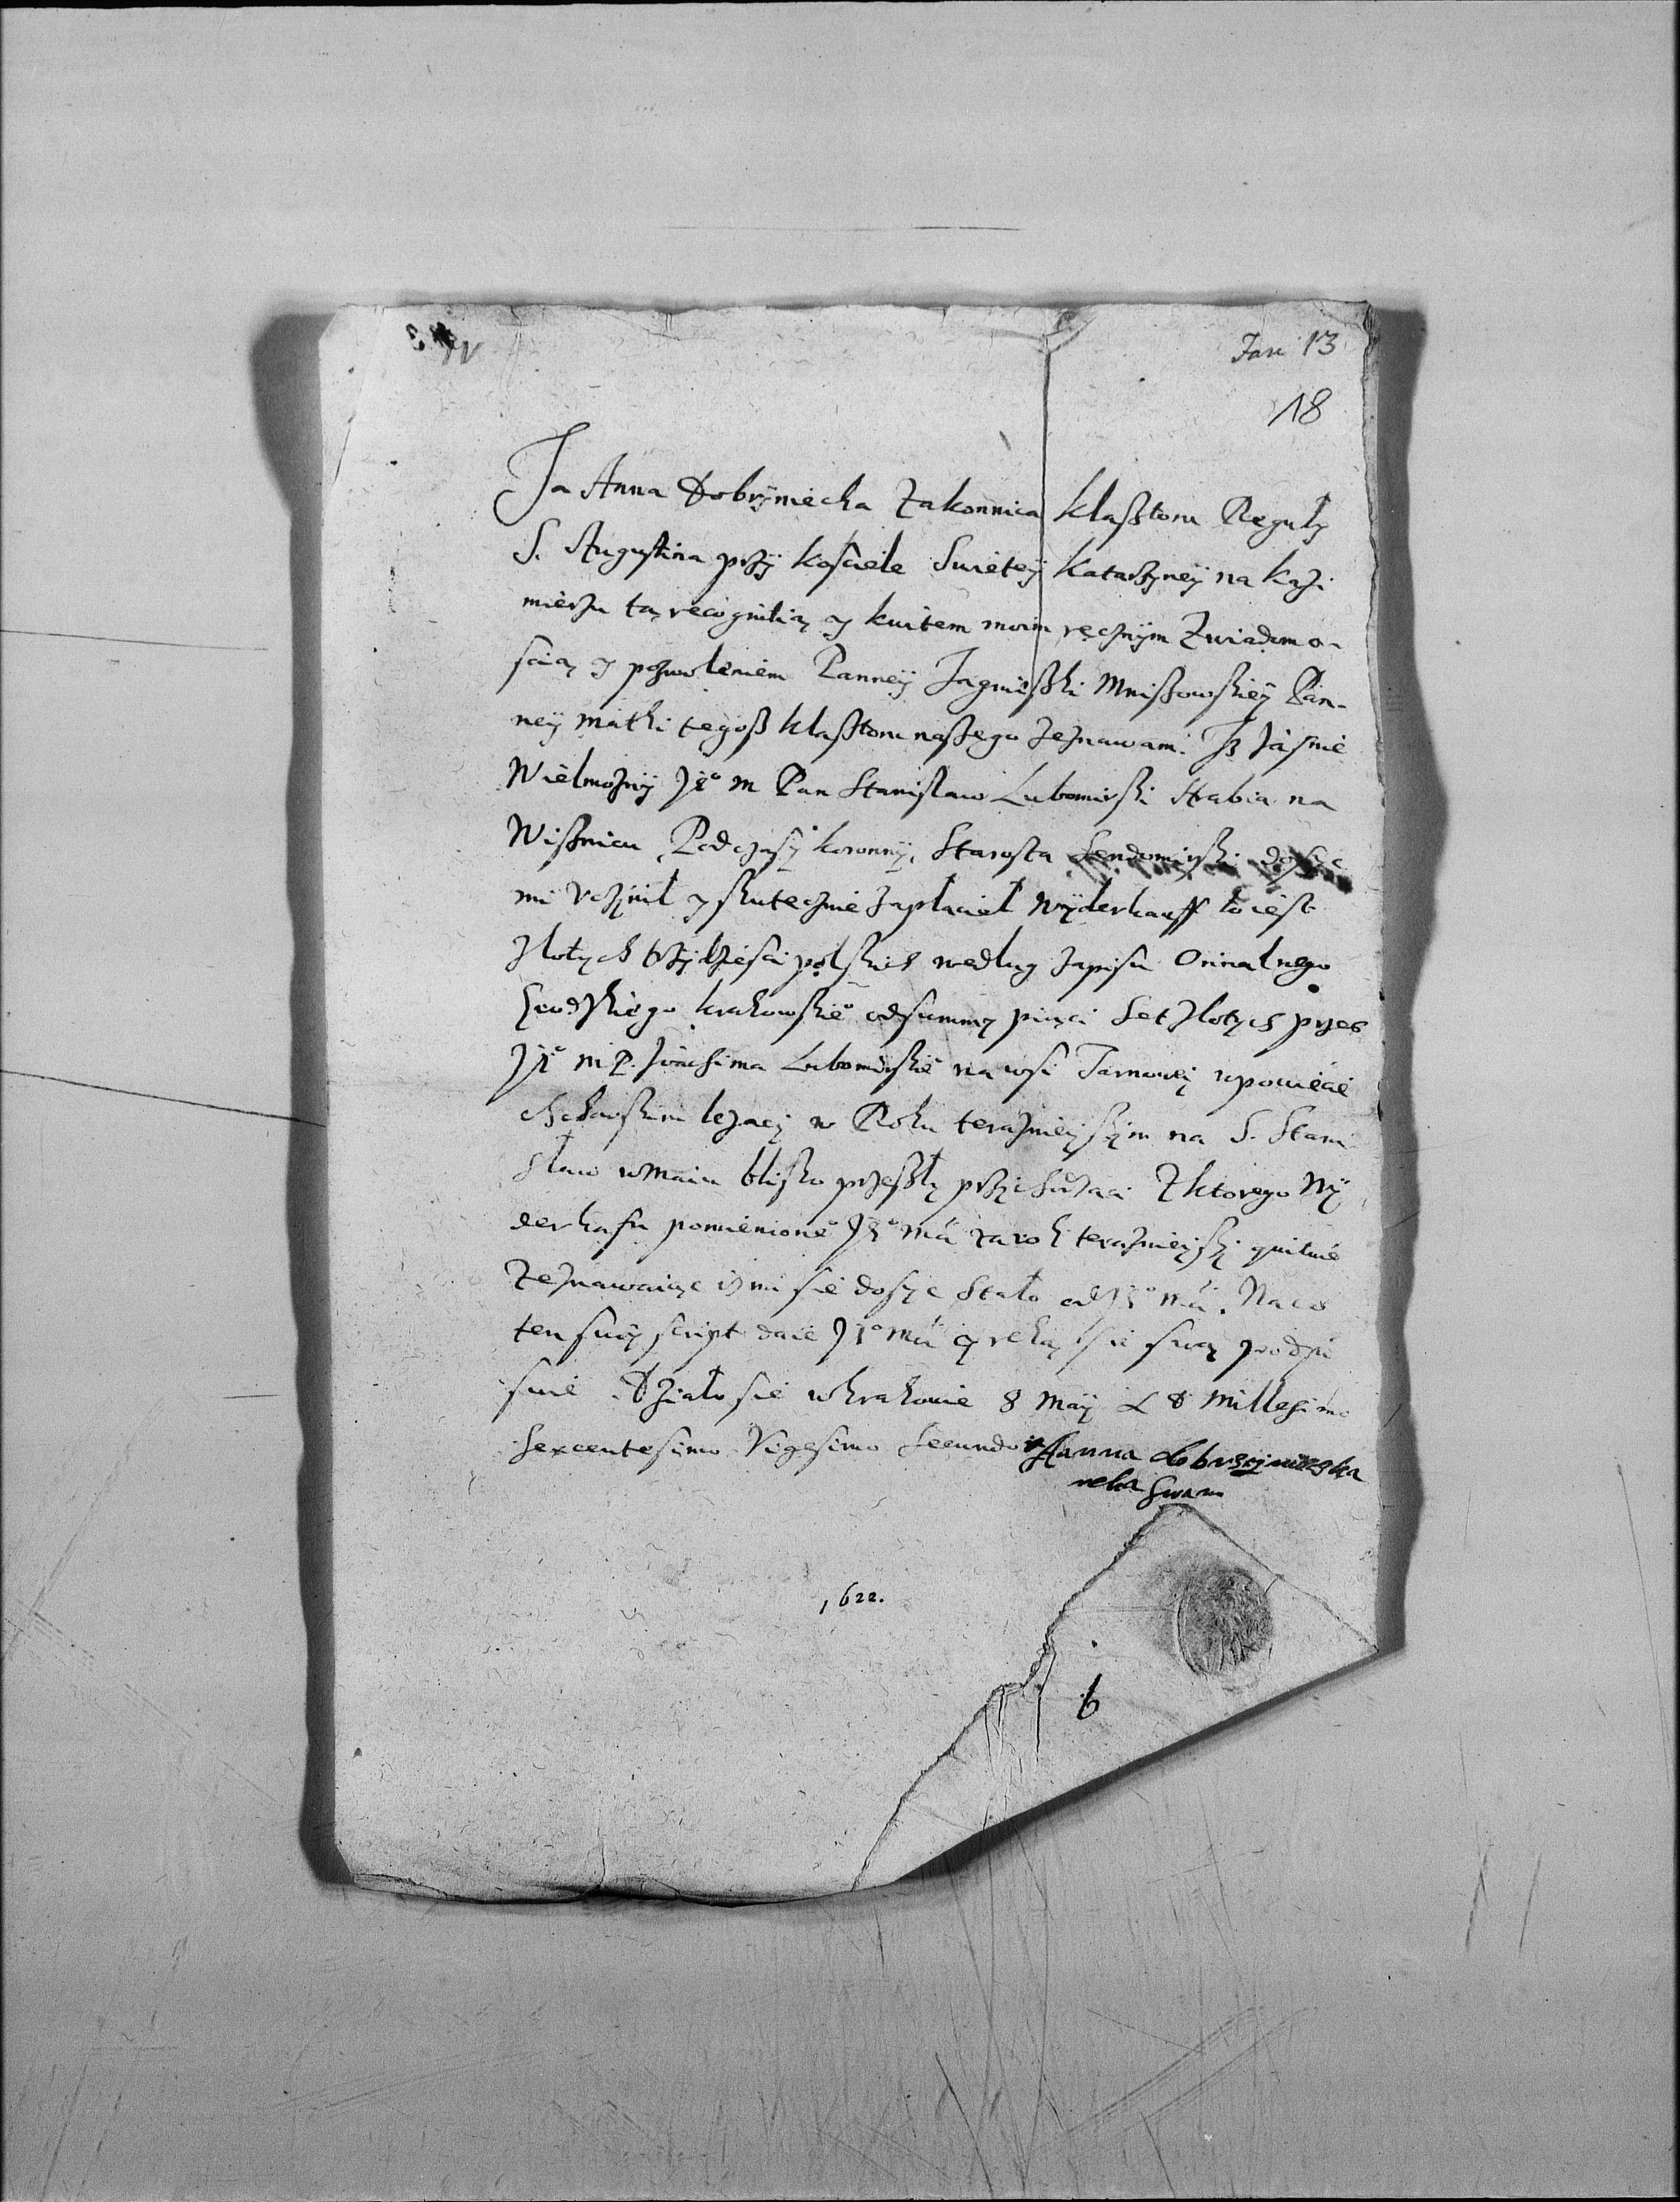 Jari 13
18
Ja Anna Dobrÿniecka Zakonnica Klasztoru Reguły
S. Augustina przÿ Kosciele Swieteÿ Katarzyneÿ na Kazi
mierzu tą recognitią y kwitem moim ręcznÿm Zwiadomo-
scią y pozwoleniem Panneÿ Jagnieszki Mniszowskieÿ Pan-
neÿ matki tegosz klasztoru naszego zeznawam. Jsz Jasnie
Wielmoznÿ Je° M Pan Stanislaw Lubomirski Hrabia na
Wisznicu Podczaszÿ koronnÿ, Starosta Sendomirski dosyc
mi vczÿnił y skutecznie zapłacieł Wÿderkauff to iest
złotych trzÿdziesci polskich według zapisu Orinalnego
Grodzkiego krakowskie° od summy pięci set złotych przes
Je° M P. Joachima Lubomirskie° na wsi Tarnawie wpowiecie
lezacÿ w Roku terazniejszÿm na S. Stani
sław w Maiu blisko przeszłÿ Z ktorego Wÿ
derkafu pomienione° Je° Mci za rok terazniejszÿ quituie
Zeznawaiąc isz mi sie dosyc stało od Je° Mci. Na co
ten swoÿ script daie Je° Mci y ręką sie swą podpi
suie. Działo sie w krakowie 8 Maÿ A D Millesimo
Sexcentesimo Vigesimo Secundo Hanna Dobrzÿniecska
reka swam
1622.
6